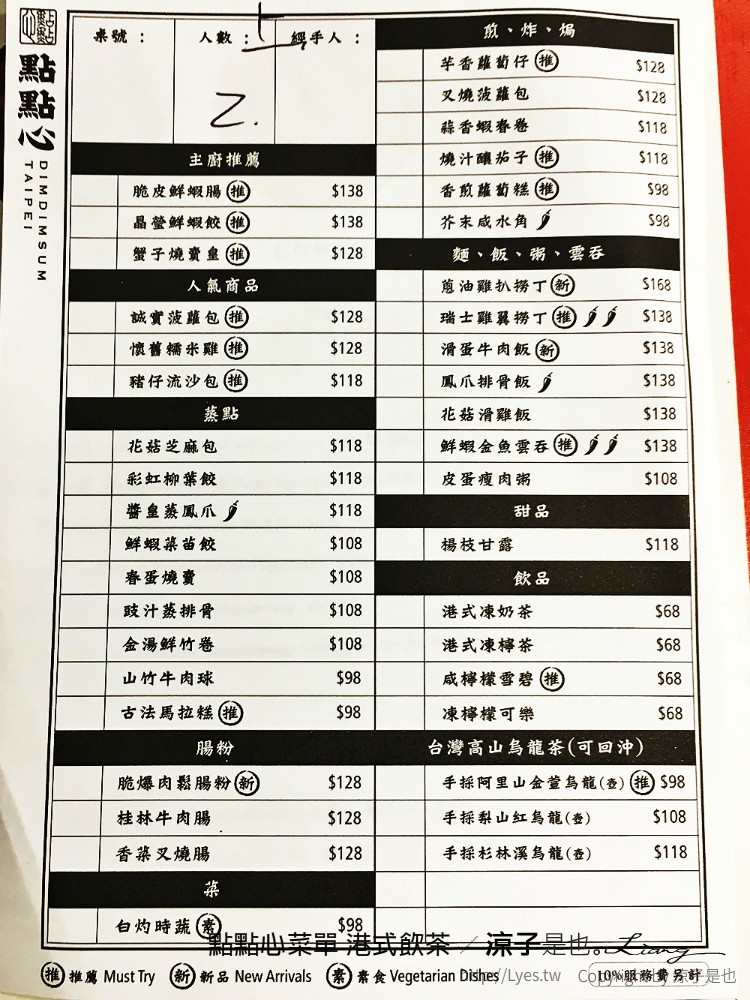 點點心
DIMDIMSUM
TAIPEI
桌號：
人數：
經手人：
2.
主廚推薦
脆皮鮮蝦腸 推 $138
晶瑩鮮蝦餃 推 $138
蟹子燒賣皇 推 $128
人氣商品
誠實菠蘿包 推 $128
懷舊糯米雞 推 $128
豬仔流沙包 推 $118
蒸點
花菇芝麻包 $118
彩虹柳葉餃 $118
醬皇蒸鳳爪 $118
鮮蝦菜苗餃 $108
春蛋燒賣 $108
豉汁蒸排骨 $108
金湯鮮竹卷 $108
山竹牛肉球 $98
古法馬拉糕 推 $98
腸粉
脆爆肉鬆腸粉 新 $128
桂林牛肉腸 $128
香菜叉燒腸 $128
菜
白灼時蔬 素 $98
煎、炸、焗
芋香蘿蔔仔 推 $128
叉燒菠蘿包 $128
蒜香蝦春卷 $118
燒汁釀茄子 推 $118
香煎蘿蔔糕 推 $98
芥末咸水角 $98
麵、飯、粥、雲吞
蔥油雞扒撈丁 新 $168
瑞士雞翼撈丁 推 $138
滑蛋牛肉飯 新 $138
鳳爪排骨飯 $138
花菇滑雞飯 $138
鮮蝦金魚雲吞 推 $138
皮蛋瘦肉粥 $108
甜品
楊枝甘露 $118
飲品
港式凍奶茶 $68
港式凍檸茶 $68
咸檸檬雪碧 推 $68
凍檸檬可樂 $68
台灣高山烏龍茶(可回沖)
手採阿里山金萱烏龍(壺) 推 $98
手採梨山紅烏龍(壺) $108
手採杉林溪烏龍(壺) $118
點點心菜單 港式飲茶 / 涼子是也。Liang
推 推薦 Must Try 新 新品 New Arrivals 素 素食 Vegetarian Dishes
10%服務費另計
http://Lyes.tw Copyright by 涼子是也